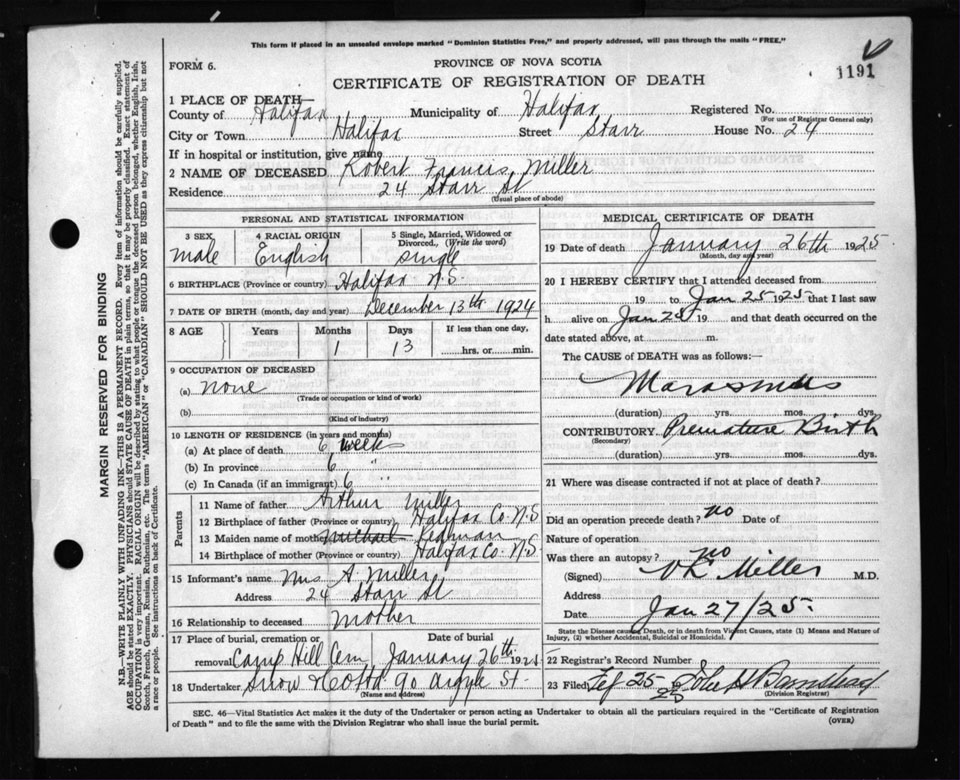 This form if placed in an unsealed envelope marked "Dominion Statistics Free," and properly addressed, will pass through the mails "FREE."
FORM 6.
PROVINCE OF NOVA SCOTIA
1191
CERTIFICATE OF REGISTRATION OF DEATH
1 PLACE OF DEATH—
County of Halifax Municipality of Halifax Registered No.
(For use of Registrar General only)
City or Town Halifax Street Starr House No. 24
If in hospital or institution, give name
2 NAME OF DECEASED Robert Francis Miller
Residence 24 Starr St
(Usual place of abode)
PERSONAL AND STATISTICAL INFORMATION
3 SEX 4 RACIAL ORIGIN 5 Single, Married, Widowed or Divorced, (Write the word)
male English single
6 BIRTHPLACE (Province or country) Halifax N.S.
7 DATE OF BIRTH (month, day and year) December 13th 1924
8 AGE Years Months Days If less than one day,
1 13 hrs. or min.
9 OCCUPATION OF DECEASED
(a) none
(Trade or occupation or kind of work)
(b)
(Kind of industry)
10 LENGTH OF RESIDENCE (in years and months)
(a) At place of death 6 week
(b) In province 6 "
(c) In Canada (if an immigrant) 6
Parents
11 Name of father Arthur Miller
12 Birthplace of father (Province or country) Halifax Co. N.S
13 Maiden name of mother Redman
14 Birthplace of mother (Province or country) Halifax Co. N.S.
15 Informant's name Mrs A. Miller
Address 24 Starr St
16 Relationship to deceased mother
17 Place of burial, cremation or removal Camp Hill Cem Date of burial January 26th 1925
18 Undertaker Snow & Co Ltd 90 Argyle St.
(Name and address)
MEDICAL CERTIFICATE OF DEATH
19 Date of death January 26th 1925
(Month, day and year)
20 I HEREBY CERTIFY that I attended deceased from
19 to Jan 25 1925 that I last saw
h alive on Jan 25 19 and that death occurred on the
date stated above, at m.
The CAUSE of DEATH was as follows:
Marasmus
(duration) yrs. mos. dys.
CONTRIBUTORY Premature Birth
(Secondary)
(duration) yrs. mos. dys.
21 Where was disease contracted if not at place of death?
Did an operation precede death? no Date of
Nature of operation
Was there an autopsy? no
(Signed) V L Miller M.D.
Address
Date Jan 27/25.
State the Disease causing Death, or in death from Violent Causes, state (1) Means and Nature of
Injury, (2) whether Accidental, Suicidal or Homicidal.
22 Registrar's Record Number
23 Filed Feb 25 25
(Division Registrar)
SEC. 46—Vital Statistics Act makes it the duty of the Undertaker or person acting as Undertaker to obtain all the particulars required in the "Certificate of Registration
of Death" and to file the same with the Division Registrar who shall issue the burial permit.
(OVER)
MARGIN RESERVED FOR BINDING
N.B.—WRITE PLAINLY WITH UNFADING INK—THIS IS A PERMANENT RECORD. Every item of information should be carefully supplied.
AGE should be stated EXACTLY. PHYSICIANS should STATE CAUSE OF DEATH in plain terms, so that it may be properly classified. Exact statement of
OCCUPATION is very important. RACIAL ORIGIN will be described by stating to what people or tongue the deceased person belonged, whether English, Irish,
Scotch, French, German, Russian, Ruthenian, etc. The terms "AMERICAN" or "CANADIAN" SHOULD NOT BE USED as they express citizenship but not
a race or people. See instructions on back of Certificate.